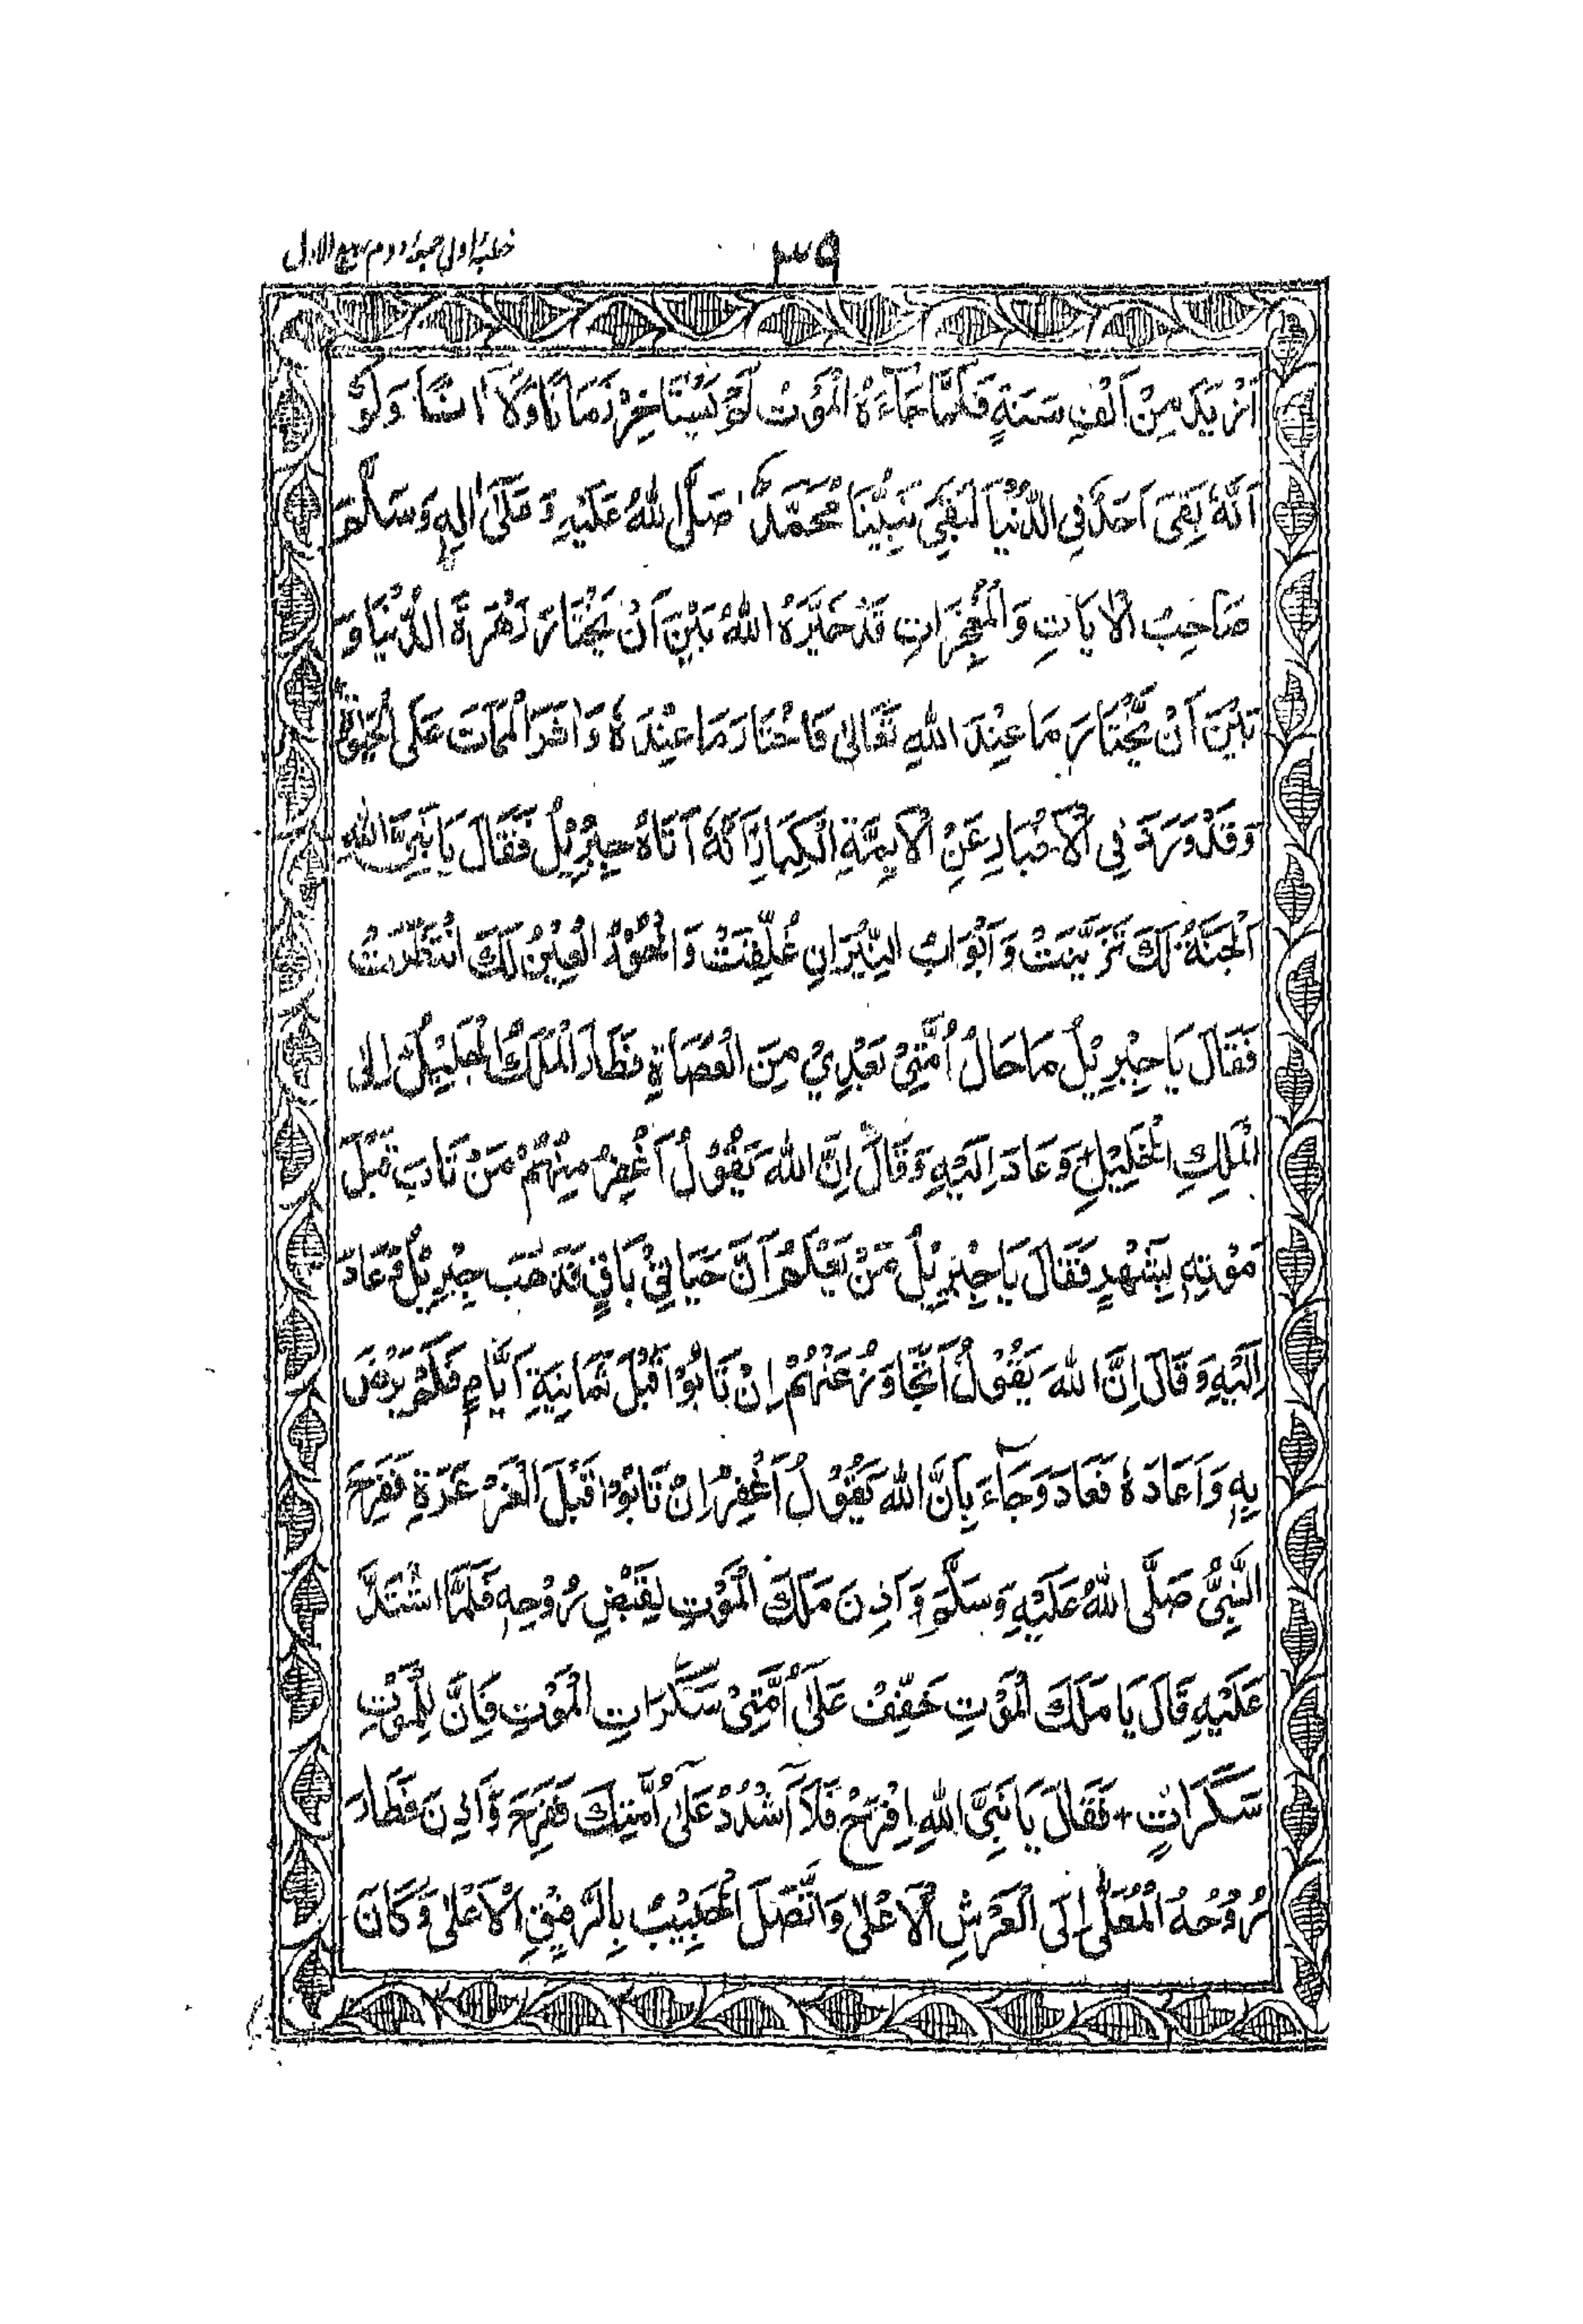 ٣٩
خطبۂ اولی جمعۂ دوم ربیع الاول
اَزْيَدَ مِنْ اَلْفِ سَنَةٍ فَلَمَّا جَآءَهُ الْمَوْتُ لَمْ يَسْتَاخِرْ زَمَانًا وَّلَا اٰنًا وَلَوْ
اَنَّهٗ بَقِیَ اَحَدٌ فِی الدُّنْيَا لَبَقِیَ نَبِيُّنَا مُحَمَّدٌ صَلَّى اللهُ عَلَيْهِ وَعَلٰٓی اٰلِهٖ وَسَلَّمَ
صَاحِبُ الْاٰيَاتِ وَالْمُعْجِزَاتِ قَدْ خَيَّرَهُ اللهُ بَيْنَ اَنْ يَّخْتَارَ زَهْرَةَ الدُّنْيَا وَ
بَيْنَ اَنْ يَّخْتَارَ مَا عِنْدَ اللهِ تَعَالٰی فَاخْتَارَ مَا عِنْدَهٗ وَاٰثَرَ الْمَمَاتَ عَلَی الْحَيٰوةِ
وَقَدْ وَرَدَ فِی الْاَخْبَارِ عَنِ الْاَئِمَّةِ الْكِبَارِ اَنَّهٗ اَتَاهُ جِبْرِيْلُ فَقَالَ يَا نَبِیَّ اللهِ
اَلْجَنَّةُ لَكَ تَزَيَّنَتْ وَاَبْوَابُ النِّيْرَانِ غُلِّقَتْ وَالْحُوْرُ الْعِيْنُ لَكَ انْتَظَرَتْ
فَقَالَ يَا جِبْرِيْلُ مَا حَالُ اُمَّتِیْ بَعْدِيْ مِنَ الْعُصَاةِ فَطَارَ الْمَلَكُ الْجَلِيْلُ اِلَی
الْمَلِكِ الْجَلِيْلِ وَعَادَ اِلَيْهِ وَقَالَ اِنَّ اللهَ يَقُوْلُ اَغْفِرُ مِنْهُمْ مَنْ تَابَ قَبْلَ
مَوْتِهٖ بِشَهْرٍ فَقَالَ يَا جِبْرِيْلُ مَنْ يَعْلَمُ اَنَّ حَيَاتِیْ بَاقٍ فَذَهَبَ جِبْرِيْلُ وَعَادَ
اِلَيْهِ وَقَالَ اِنَّ اللهَ يَقُوْلُ اَتَجَاوَزُ عَنْهُمْ اِنْ تَابُوْا قَبْلَ ثَمَانِيَةِ اَيَّامٍ فَلَمْ يَرْضَ
بِهٖ وَاَعَادَهٗ فَعَادَ وَجَآءَ بِاَنَّ اللهَ يَقُوْلُ اَغْفِرُ اِنْ تَابُوْا قَبْلَ الْغَرْغَرَةِ فَفَرِحَ
النَّبِیُّ صَلَّى اللهُ عَلَيْهِ وَسَلَّمَ وَاَذِنَ مَلَكَ الْمَوْتِ لِقَبْضِ رُوْحِهٖ فَلَمَّا اشْتَدَّ
عَلَيْهِ قَالَ يَا مَلَكَ الْمَوْتِ خَفِّفْ عَلٰٓی اُمَّتِیْ سَكَرَاتِ الْمَوْتِ فَاِنَّ لِلْمَوْتِ
سَكَرَاتٍ + فَقَالَ يَا نَبِیَّ اللهِ اِفْرَحْ فَلَآ اَشْدُدْ عَلٰٓی اُمَّتِكَ فَفَرِحَ وَاَذِنَ فَطَارَ
رُوْحُهُ الْمُعَلّٰی اِلَی الْعَرْشِ الْاَعْلٰی وَاتَّصَلَ الْحَبِيْبُ بِالرَّفِيْقِ الْاَعْلٰی وَكَانَ